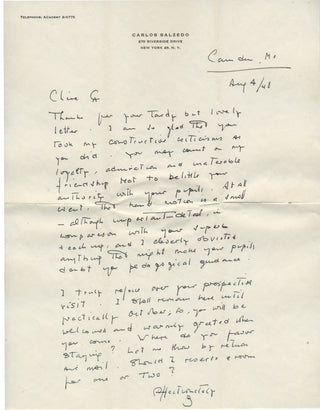 TELEPHONE: ACADEMY 2-0775
CARLOS SALZEDO
270 RIVERSIDE DRIVE
NEW YORK 25, N. Y.
Camden, Me
Aug 4/48
Thanks for your tardy but lovely
letter. I am so glad that you
took my constructive criticisms as
you did. You may count on my
loyalty, admiration and
friendship not to belittle your
authority with your pupils. At all
event, that hand motion is a small
– although important – detail, in
comparison with your superb
teaching, and I cleverly obviated
anything that might make your pupils
doubt your pedagogical guidance.
I truly rejoice over your prospective
visit. I shall remain here until
practically October, so, you will be
welcomed and warmly greeted when
you come. Where do you favor
staying? Let me know by return
air mail. Should I reserve a room
for one or two?
Affectionately